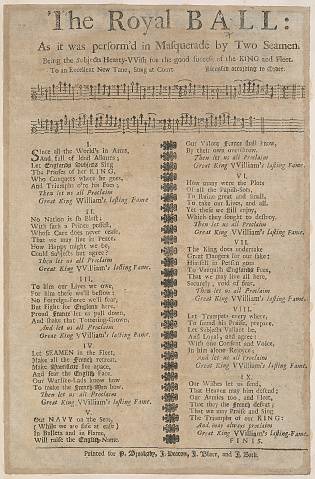 The Royal BALL:
As it was perform'd in Masquerade by Two Seamen.
Being the Subjects Hearty-VVish for the good success of the KING and Fleet.
To an Excellent New Tune, Sung at Court. Licensed according to Order.
I.
Since all the World's in Arms,
And full of loud Allarms;
Let Englands Subjects Sing
The Praises of her KING,
Who Conquers where he goes,
And Triumphs o're his Foes;
Then let us all Proclaim
Great King William's lasting Fame.
II.
No Nation is so Blest;
With such a Prince possest,
Whose Care does never cease,
That we may live in Peace.
How Happy might we be,
Could Subjects but agree?
Then let us all Proclaim
Great King VVilliam's lasting Fame.
III.
To him our Lives we owe,
For him these we'll bestow;
No Forreign Force we'll fear,
But Fight for England here.
Proud France let us pull down,
And shake that Tottering-Crown;
And let us all Proclaim
Great King VVilliam's lasting Fame.
IV.
Let SEAMEN in the Fleet,
Make all the French retreat,
Make the
And fear the English Face.
Our Warlike-Lads know how
To make the French-Men bow.
Then let us all Proclaim
Great King VVilliam's lasting Fame.
V.
Our NAVY on the Seas,
(While we are safe at ease)
In Bullets and in Flame,
Will raise the English-Name.
Our Valour France shall know,
By their own overthrow.
Then let us all Proclaim
Great King VVilliam's lasting Fame.
VI.
How many were the Plots
Of all the Papish-Sots,
To Ruine great and small,
To take our Lives, and all.
All these we still enjoy,
Which they sought to destroy.
Then let us all Proclaim
Great King VVilliam's lasting Fame.
VII.
The King does undertake
Great Dangers for our sake:
Himself in Person goes
To Vanquish Englands Foes,
That we may live all here,
Securely, void of fear.
Then let us all Proclaim
Great King VVilliam's lasting Fame.
VIII.
Let Trumpets every where,
To sound his Praise, prepare.
Let Subjects Valiant be,
And Loyal, and agree:
With one Consent and Voice,
In him alone Rejoyce;
And let us all Proclaim
Great King VVilliam's lasting Fame.
IX.
Our Wishes let us send,
That Heaven may him defend;
Our Armies too, and Fleet,
That they the French defeat;
That we may Praise and Sing
The Triumphs of our KING:
And may always proclaim
Great King VVilliam's lasting-Fame.
FINIS.
Printed for P. Brooksby, J. Deacon, J. Blare, and J. Back.